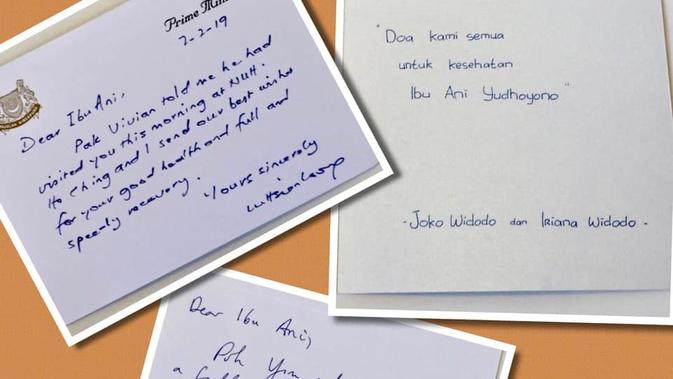 Prime Min
7-2-19
Dear Ibu Ani,
Pak Vivian told me he had
visited you this morning at NUH.
Ho Ching and I send our best wishes
for your good health and full and
speedy recovery.
Yours sincerely
"Doa kami semua
untuk kesehatan
Ibu Ani Yudhoyono"
- Joko Widodo dan Iriana Widodo -
Dear Ibu Ani,
Pak
a